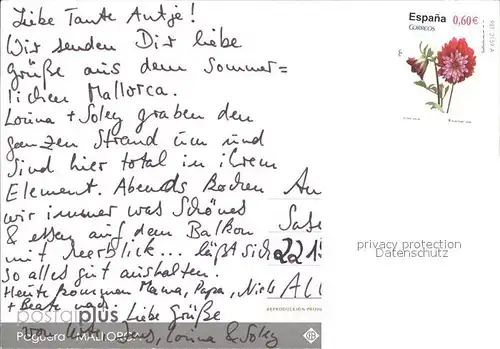 Liebe Tante Antje!
Wir senden Dir liebe
Grüße aus dem Sommer=
lichen Mallorca.
Lorina + Soley graben den
ganzen Strand um und
sind hier total in ihrem
Element. Abends kochen
wir immer was Schönes
& essen auf dem Balkon
mit Meerblick... läßt sich
so alles gut aushalten.
Heute kommen Mama, Papa, Nick
+ Beate nach. Liebe Grüße
von Jens, Lorina & Soley
An
221
All
España 0,60€
CORREOS
privacy protection
Datenschutz
REPRODUCCIÓN PROHI
postalplus
Peguera - MALLORCA